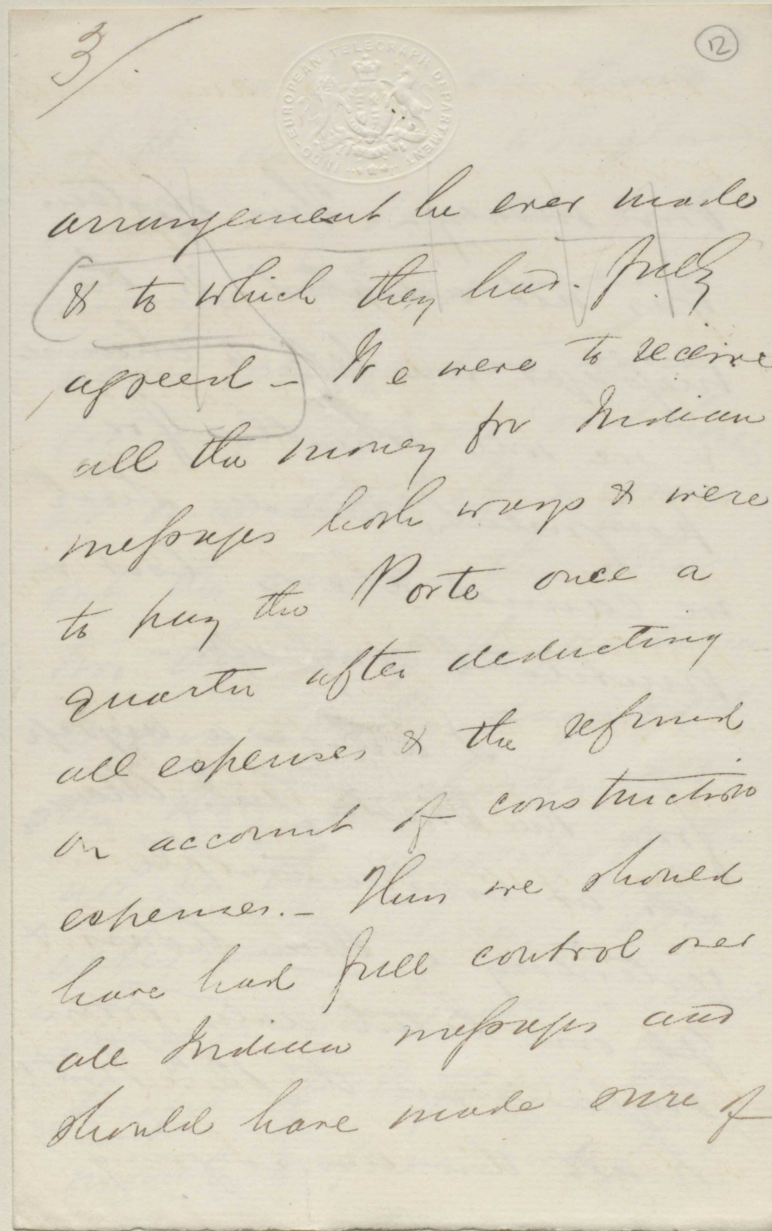 3/.
12
INDO-EUROPEAN TELEGRAPH DEPARTMENT
arrangement he ever made
& to which they had fully
agreed – We were to receive
all the money for Indian
messages both ways & were
to pay the Porte once a
quarter after deducting
all expenses & the refund
on account of construction
expenses. – Thus we should
have had full control over
all Indian messages and
should have made sure of